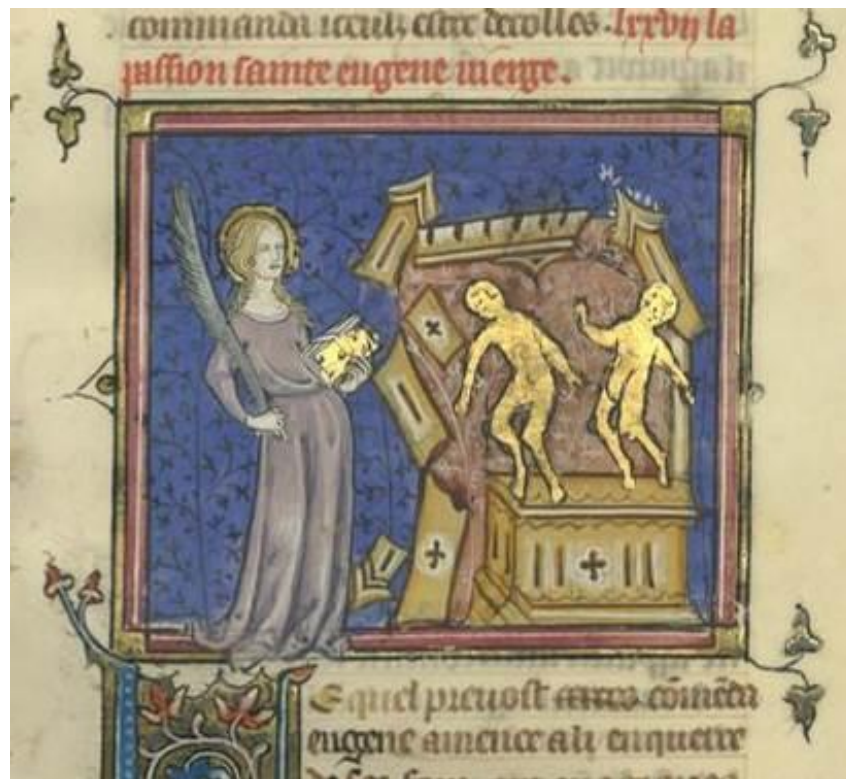 commanda iceulz estre decolles. lxxvij la
passion sainte eugene vierge.
equel prevost comẽda
eugene amenee a li enquerre
de ses